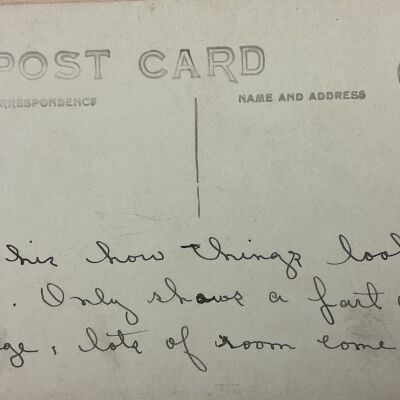 POST CARD
RRESPONDENCE
NAME AND ADDRESS
his how things loo
. Only shows a part
ge, lots of room come